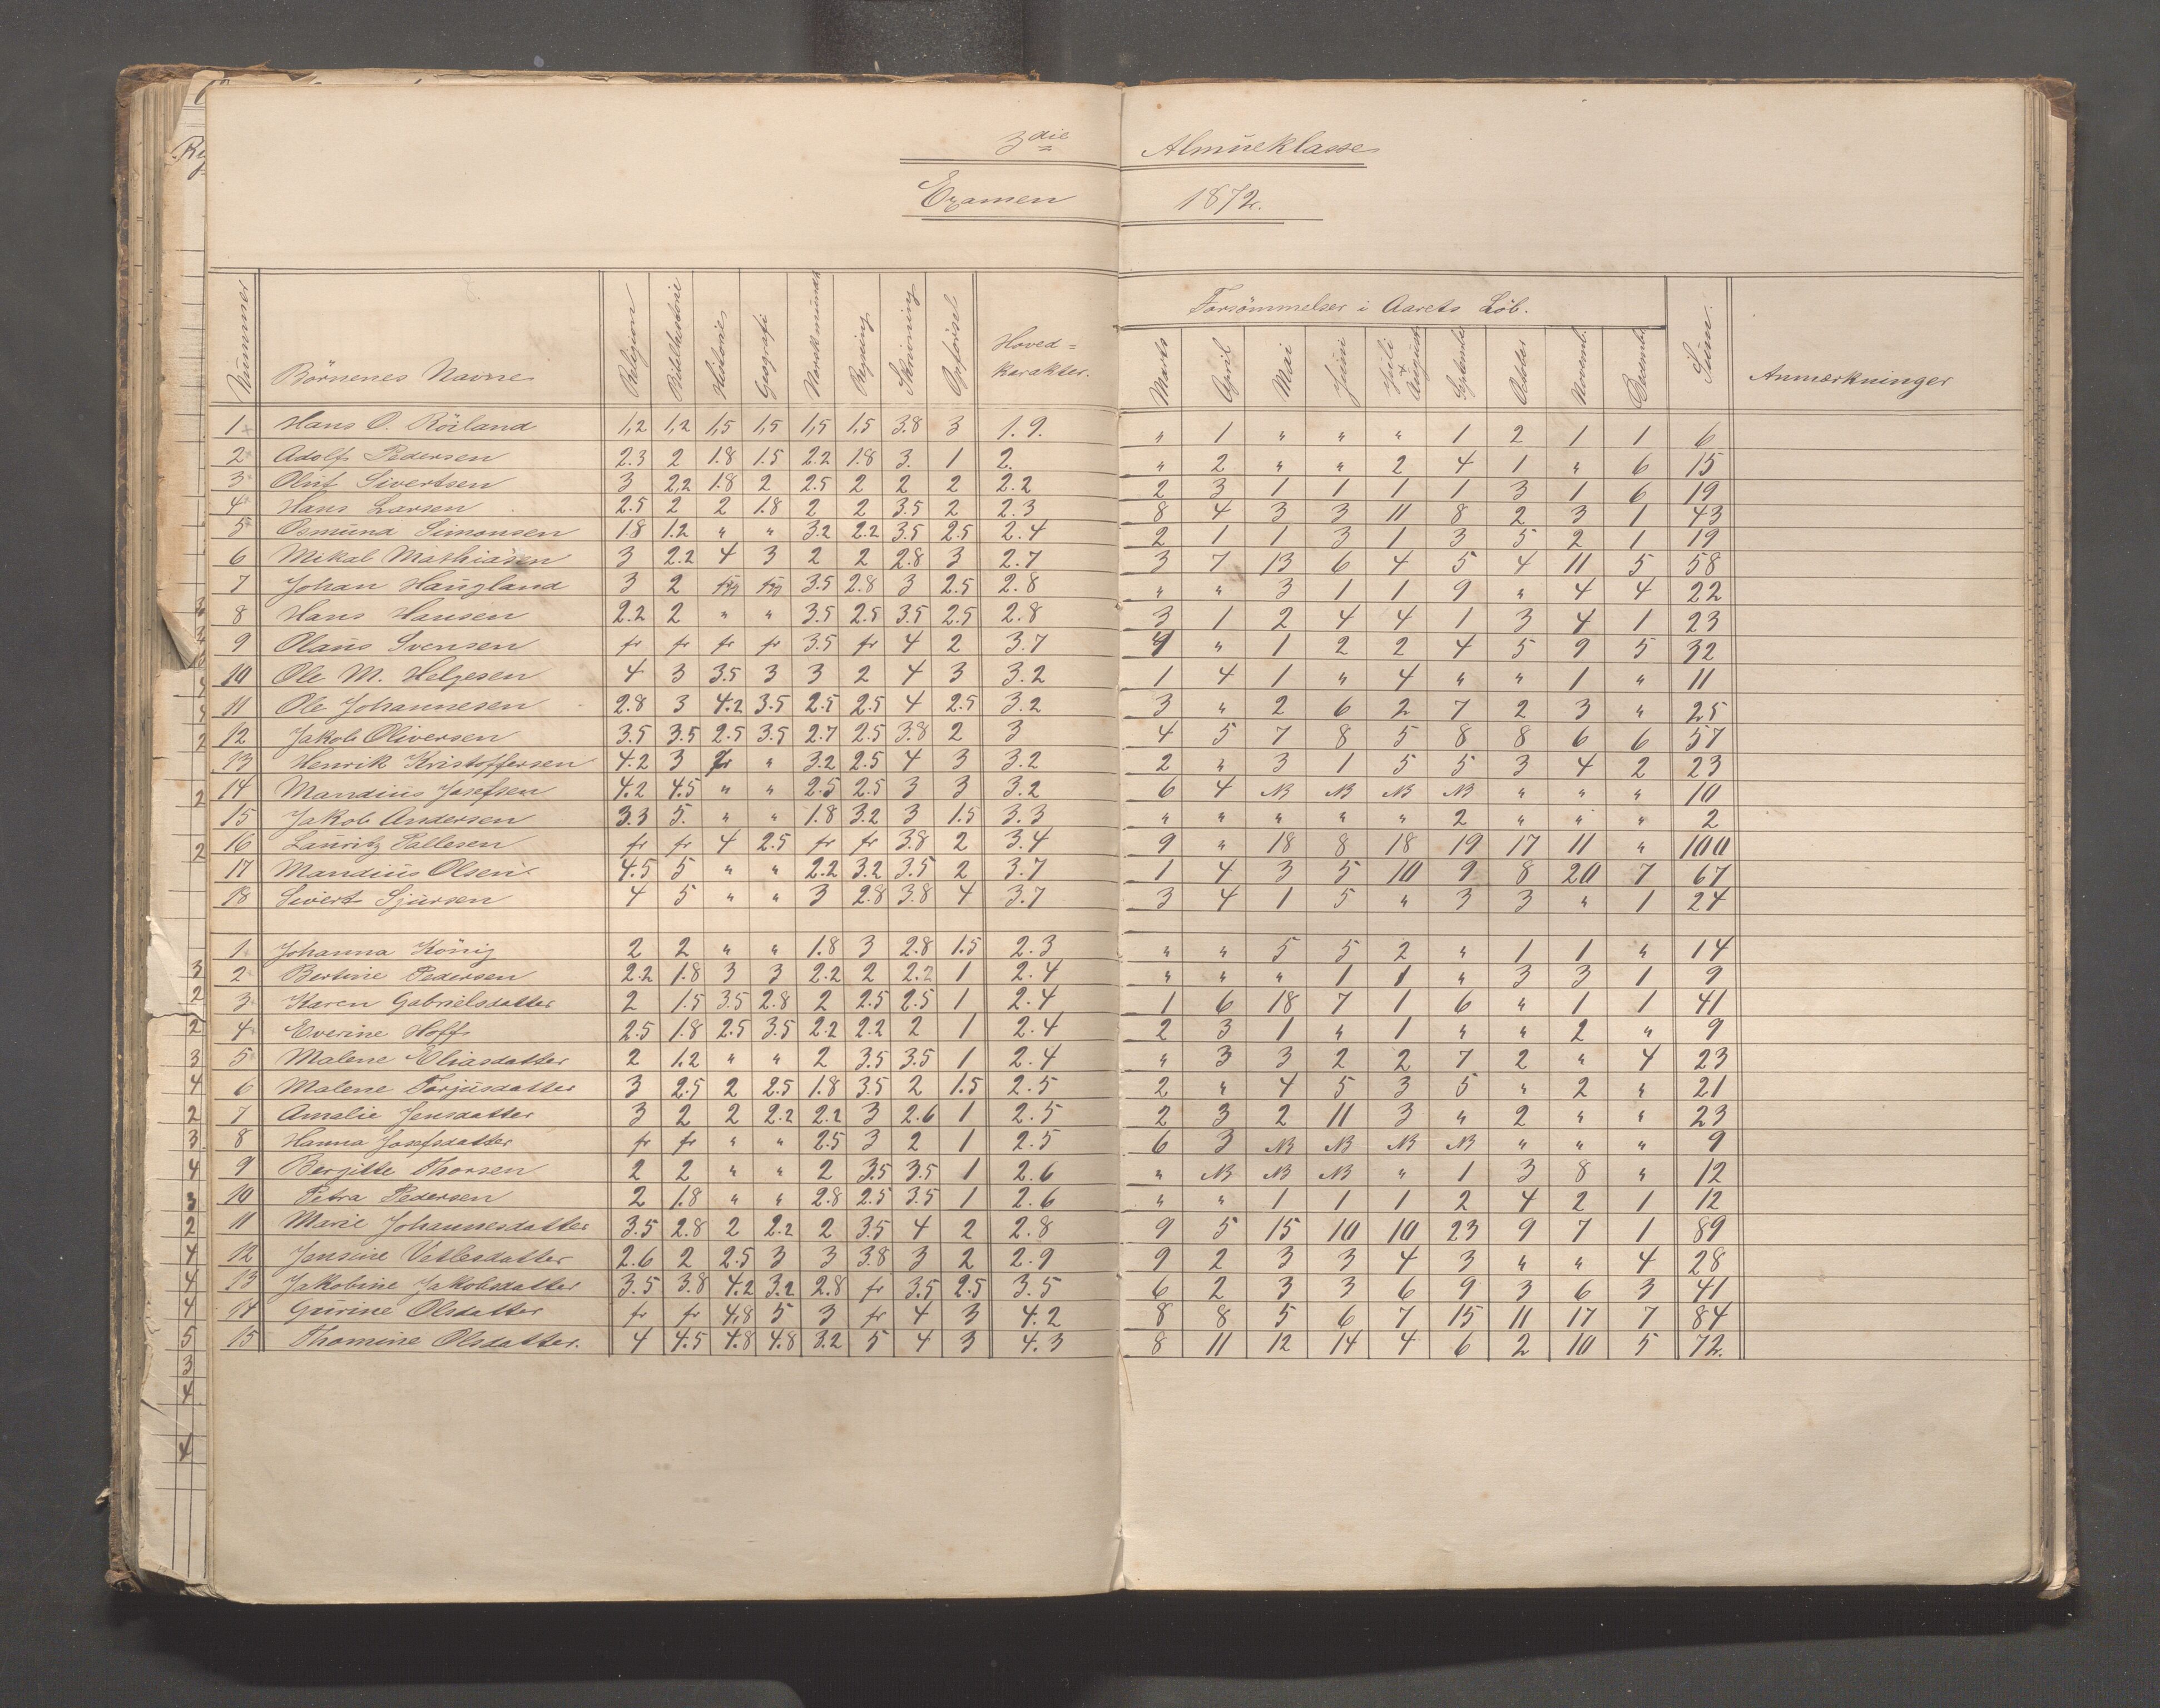 3die Almueklasse
Examen 1872.
Nummer Börnenes Navne Religion Bibelhistorie Historie Geografi Norskmundtl. Regning Skrivning Opförsel Hoved=karakter. Forsömmelser i Aarets Löb. Marts April Mai Juni Juli & August Septembr October Novemb. Decembr Sum. Anmærkninger
1 Hans O. Röiland 1,2 1,2 1,5 1,5 1,5 1,5 3.8 3 1.9. " 1 " " " 1 2 1 1 6
2 Adolf Pedersen 2.3 2 1.8 1.5 2.2 1.8 3. 1 2. " 2 " " 2 4 1 " 6 15
3 Oluf Sivertsen 3 2,2 1.8 2 2.5 2 2 2 2.2 2 3 1 1 1 1 3 1 6 19
4 Hans Larsen 2.5 2 2 1.8 2 2 3.5 2 2.3 8 4 3 3 11 8 2 3 1 43
5 Osmund Simonsen 1.8 1.2 " " 3.2 2.2 3.5 2.5 2.4 2 1 1 3 1 3 5 2 1 19
6 Mikal Mathiasen 3 2.2 4 3 2 2 2.8 3 2.7 3 7 13 6 4 5 4 11 5 58
7 Johan Haugland 3 2 3.5 2.8 3 2.5 2.8 " " 3 1 1 9 " 4 4 22
8 Hans Hansen 2.2 2 " " 3.5 2.5 3.5 2.5 2.8 3 1 2 4 4 1 3 4 1 23
9 Olaus Svensen fr fr fr fr 3.5 fr 4 2 3.7 4 " 1 2 2 4 5 9 5 32
10 Ole M. Helgesen 4 3 3.5 3 3 2 4 3 3.2 1 4 1 " 4 " " 1 " 11
11 Ole Johannesen 2.8 3 4.2 3.5 2.5 2.5 4 2.5 3.2 3 " 2 6 2 7 2 3 " 25
12 Jakob Oliversen 3.5 3.5 2.5 3.5 2.7 2.5 3.8 2 3 4 5 7 8 5 8 8 6 6 57
13 Henrik Kristoffersen 4.2 3 fr " 3.2 2.5 4 3 3.2 2 " 3 1 5 5 3 4 2 23
14 Mandius Josefsen 4.2 4.5 " " 2.5 2.5 3 3 3.2 6 4 NB NB NB NB " " " 10
15 Jakob Andersen 3.3 5. " " 1.8 3.2 3 1.5 3.3 " " " " " 2 " " " 2
16 Lauritz Pallesen fr fr 4 2.5 fr fr 3.8 2 3.4 9 " 18 8 18 19 17 11 " 100
17 Mandius Olsen 4.5 5 " " 2.2 3.2 3.5 2 3.7 1 4 3 5 10 9 8 20 7 67
18 Sivert Sjursen 4 5 " " 3 2.8 3.8 4 3.7 3 4 1 5 " 3 3 " 1 24
1. Johanna König 2 2 " " 1.8 3 2.8 1.5 2.3 " " 5 5 2 " 1 1 " 14
2 Bertine Pedersen 2.2 1.8 3 3 2.2 2 2.2 1 2.4 " " " 1 1 " 3 3 1 9
3 Karen Gabrielsdatter 2 1.5 3.5 2.8 2 2.5 2.5 1 2.4 1 6 18 7 1 6 " 1 1 41
4 Everine Hoff 2.5 1.8 2.5 3.5 2.2 2.2 2 1 2.4 2 3 1 " 1 " " 2 " 9
5 Malene Eliasdatter 2 1.2 " " 2 3.5 3.5 1 2.4 " 3 3 2 2 7 2 " 4 23
6 Malene Torjusdatter 3 2.5 2 2.5 1.8 3.5 2 1.5 2.5 2 " 4 5 3 5 " 2 " 21
7 Amalie Jensdatter 3 2 2 2.2 2.2 3 2.6 1 2.5 2 3 2 11 3 " 2 " " 23
8 Hanna Josefsdatter fr fr " " 2.5 3 2 1 2.5 6 3 NB NB NB NB " " " 9
9 Bergitte Thorsen 2 2 " " 2 3.5 3.5 1 2.6 " NB NB NB " 1 3 8 " 12
10 Petra Pedersen 2 1.8 " " 2.8 2.5 3.5 1 2.6 " " 1 1 1 2 4 2 1 12
11 Marie Johannesdatter 3.5 2.8 2 2.2 2 3.5 4 2 2.8 9 5 15 10 10 23 9 7 1 89
12 Jensine Vetlesdatter 2.6 2 2.5 3 3 3.8 3 2 2.9 9 2 3 3 4 3 " " 4 28
13 Jakobine Jakobsdatter 3.5 3.8 4.2 3.2 2.8 fr 3.5 2.5 3.5 6 2 3 3 6 9 3 6 3 41
14 Gurine Olsdatter fr fr 4,8 5 3 fr 4 3 4.2 8 8 5 6 7 15 11 17 7 84
15 Thomine Olsdatter. 4 4.5 4.8 4.8 3.2 5 4 3 4.3 8 11 12 14 4 6 2 10 5 72.